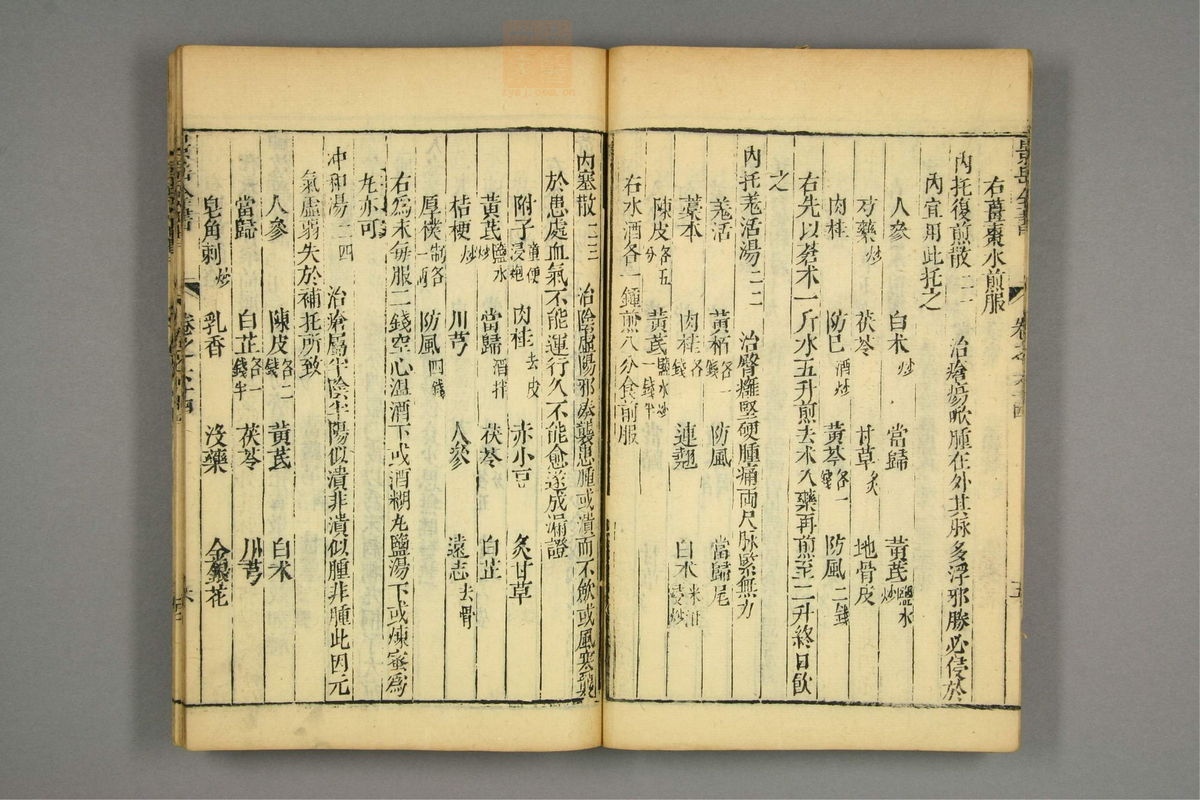 右薑棗水煎服
內托復煎散二一　治瘡瘍焮腫在外其脉多浮邪勝必侵於
內宜用此托之
人參　白术炒　當歸　黃芪鹽水炒
芍藥炒　茯苓　甘草炙　地骨皮
肉桂　防巳酒炒　黃芩各一錢　防風二錢
右先以蒼术一斤水五升煎去术入藥再煎至二升終日飲
之
內托羗活湯二二　治臀癰堅硬腫痛兩尺脉緊無力
羗活　黃栢各一錢　防風　當歸尾
藁本　肉桂各錢　連翹　白术米泔浸炒
陳皮各五分　黃芪鹽水炒一錢半
右水酒各一鍾煎八分食前服
內塞散二三　治陰虛陽邪湊襲患腫或潰而不斂或風寒襲
於患處血氣不能運行久不能愈遂成漏證
附子童便浸炮　肉桂去皮　赤小豆　炙甘草
黃芪鹽水炒　當歸酒拌　茯苓　白芷
桔梗炒　川芎　人參　遠志去骨
厚樸制各一兩　防風四錢
右爲末每服二錢空心溫酒下或酒糊丸鹽湯下或煉蜜爲
丸亦可
冲和湯二四　治瘡屬半陰半陽似潰非潰似腫非腫此因元
氣虛弱失於補托所致
人參　陳皮各二錢　黃芪　白术
當歸　白芷各一錢半　茯苓　川芎
皂角刺炒　乳香　沒藥　金銀花
景岳全書